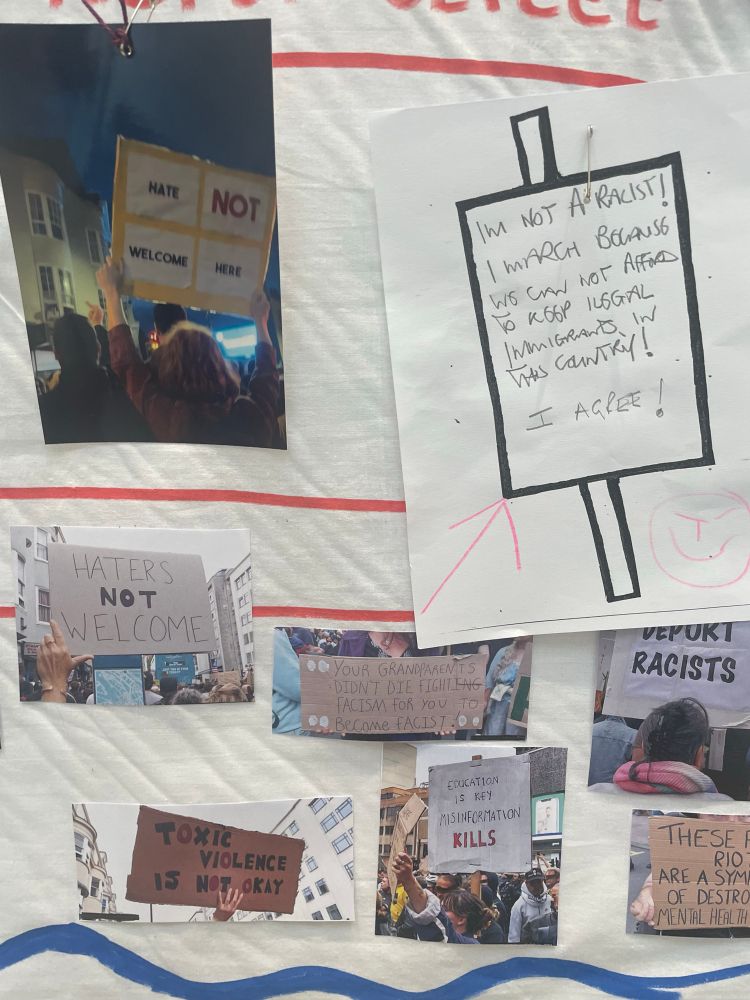 STREET
HATE
NOT
WELCOME
HERE
IM NOT A RACIST!
I MARCH BECAUSE
WE CAN NOT AFFORD
TO KEEP ILEGAL
IMMIGRANTS IN
THIS COUNTRY!
I AGREE!
HATERS
NOT
WELCOME
YOUR GRANDPARENTS
DIDN'T DIE FIGHTING
FACISM FOR YOU TO
BECOME FACIST.
DEPORT
RACISTS
EDUCATION
IS KEY
MISINFORMATION
KILLS
TOXIC
VIOLENCE
IS NOT OKAY
THESE
RIO
ARE A SYM
OF DESTRO
MENTAL HEALTH